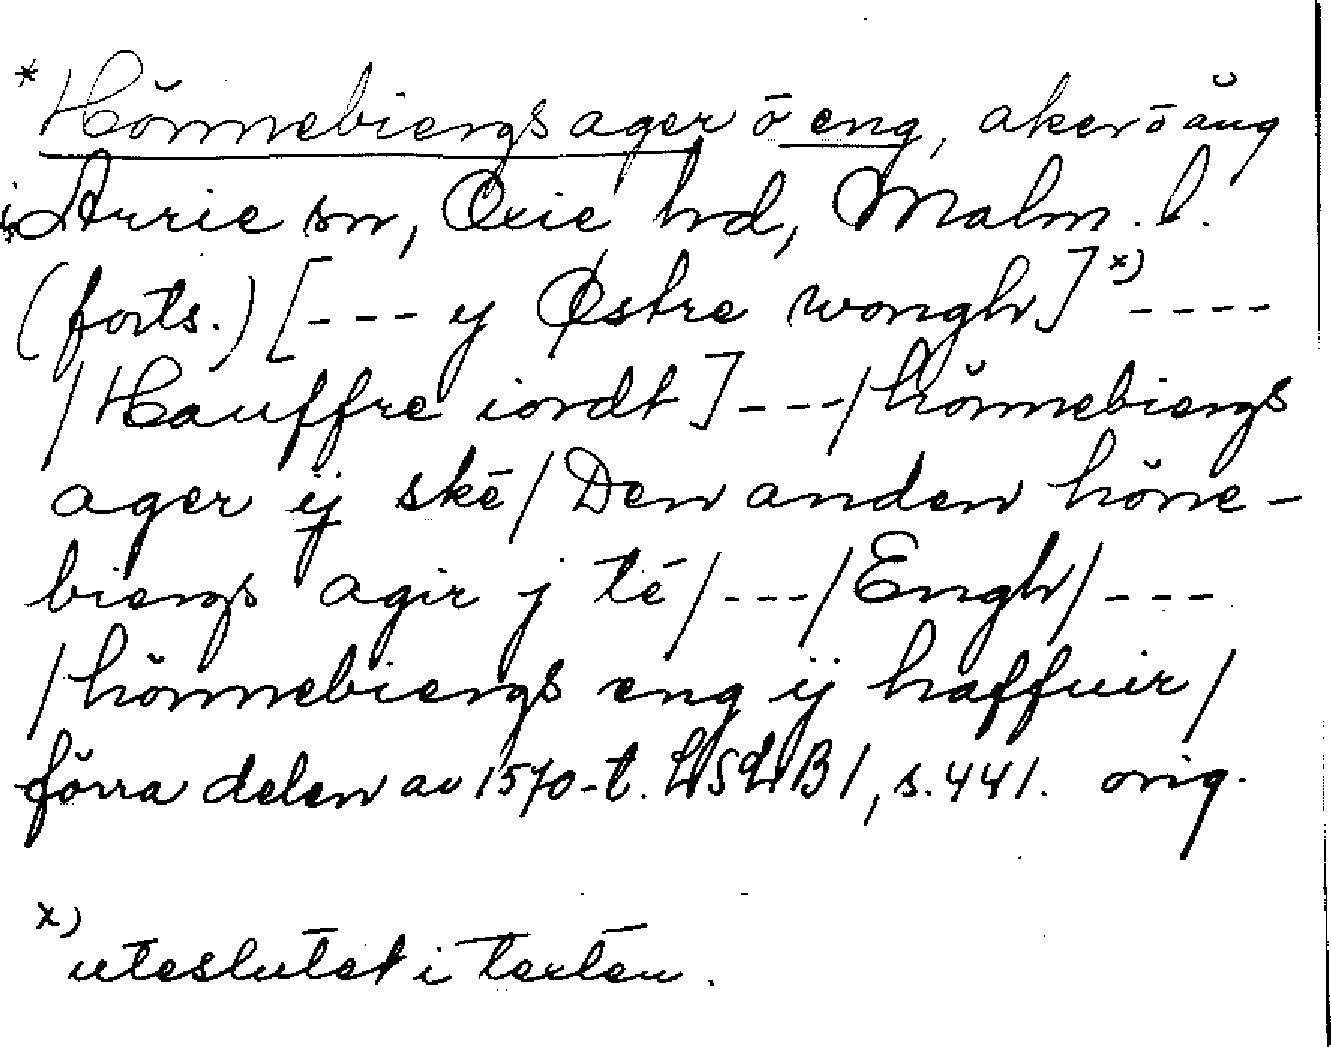 *Hŏnnebiergs ager ō eng, åker ō äng
i Arrie sn, Oxie hd, Malm. l.
(forts.) [--- y Østre wongh] x) ----
/Hauffre iordt] ---/hŏnnebiergs
ager ij skē/Den anden hŏnne-
biergs agir j tē/---/Engh/---
/hŏnnebiergs eng ij haffuir/
förra delen av 1570-t. LSLB1, s. 441. orig.
x) uteslutet i texten.